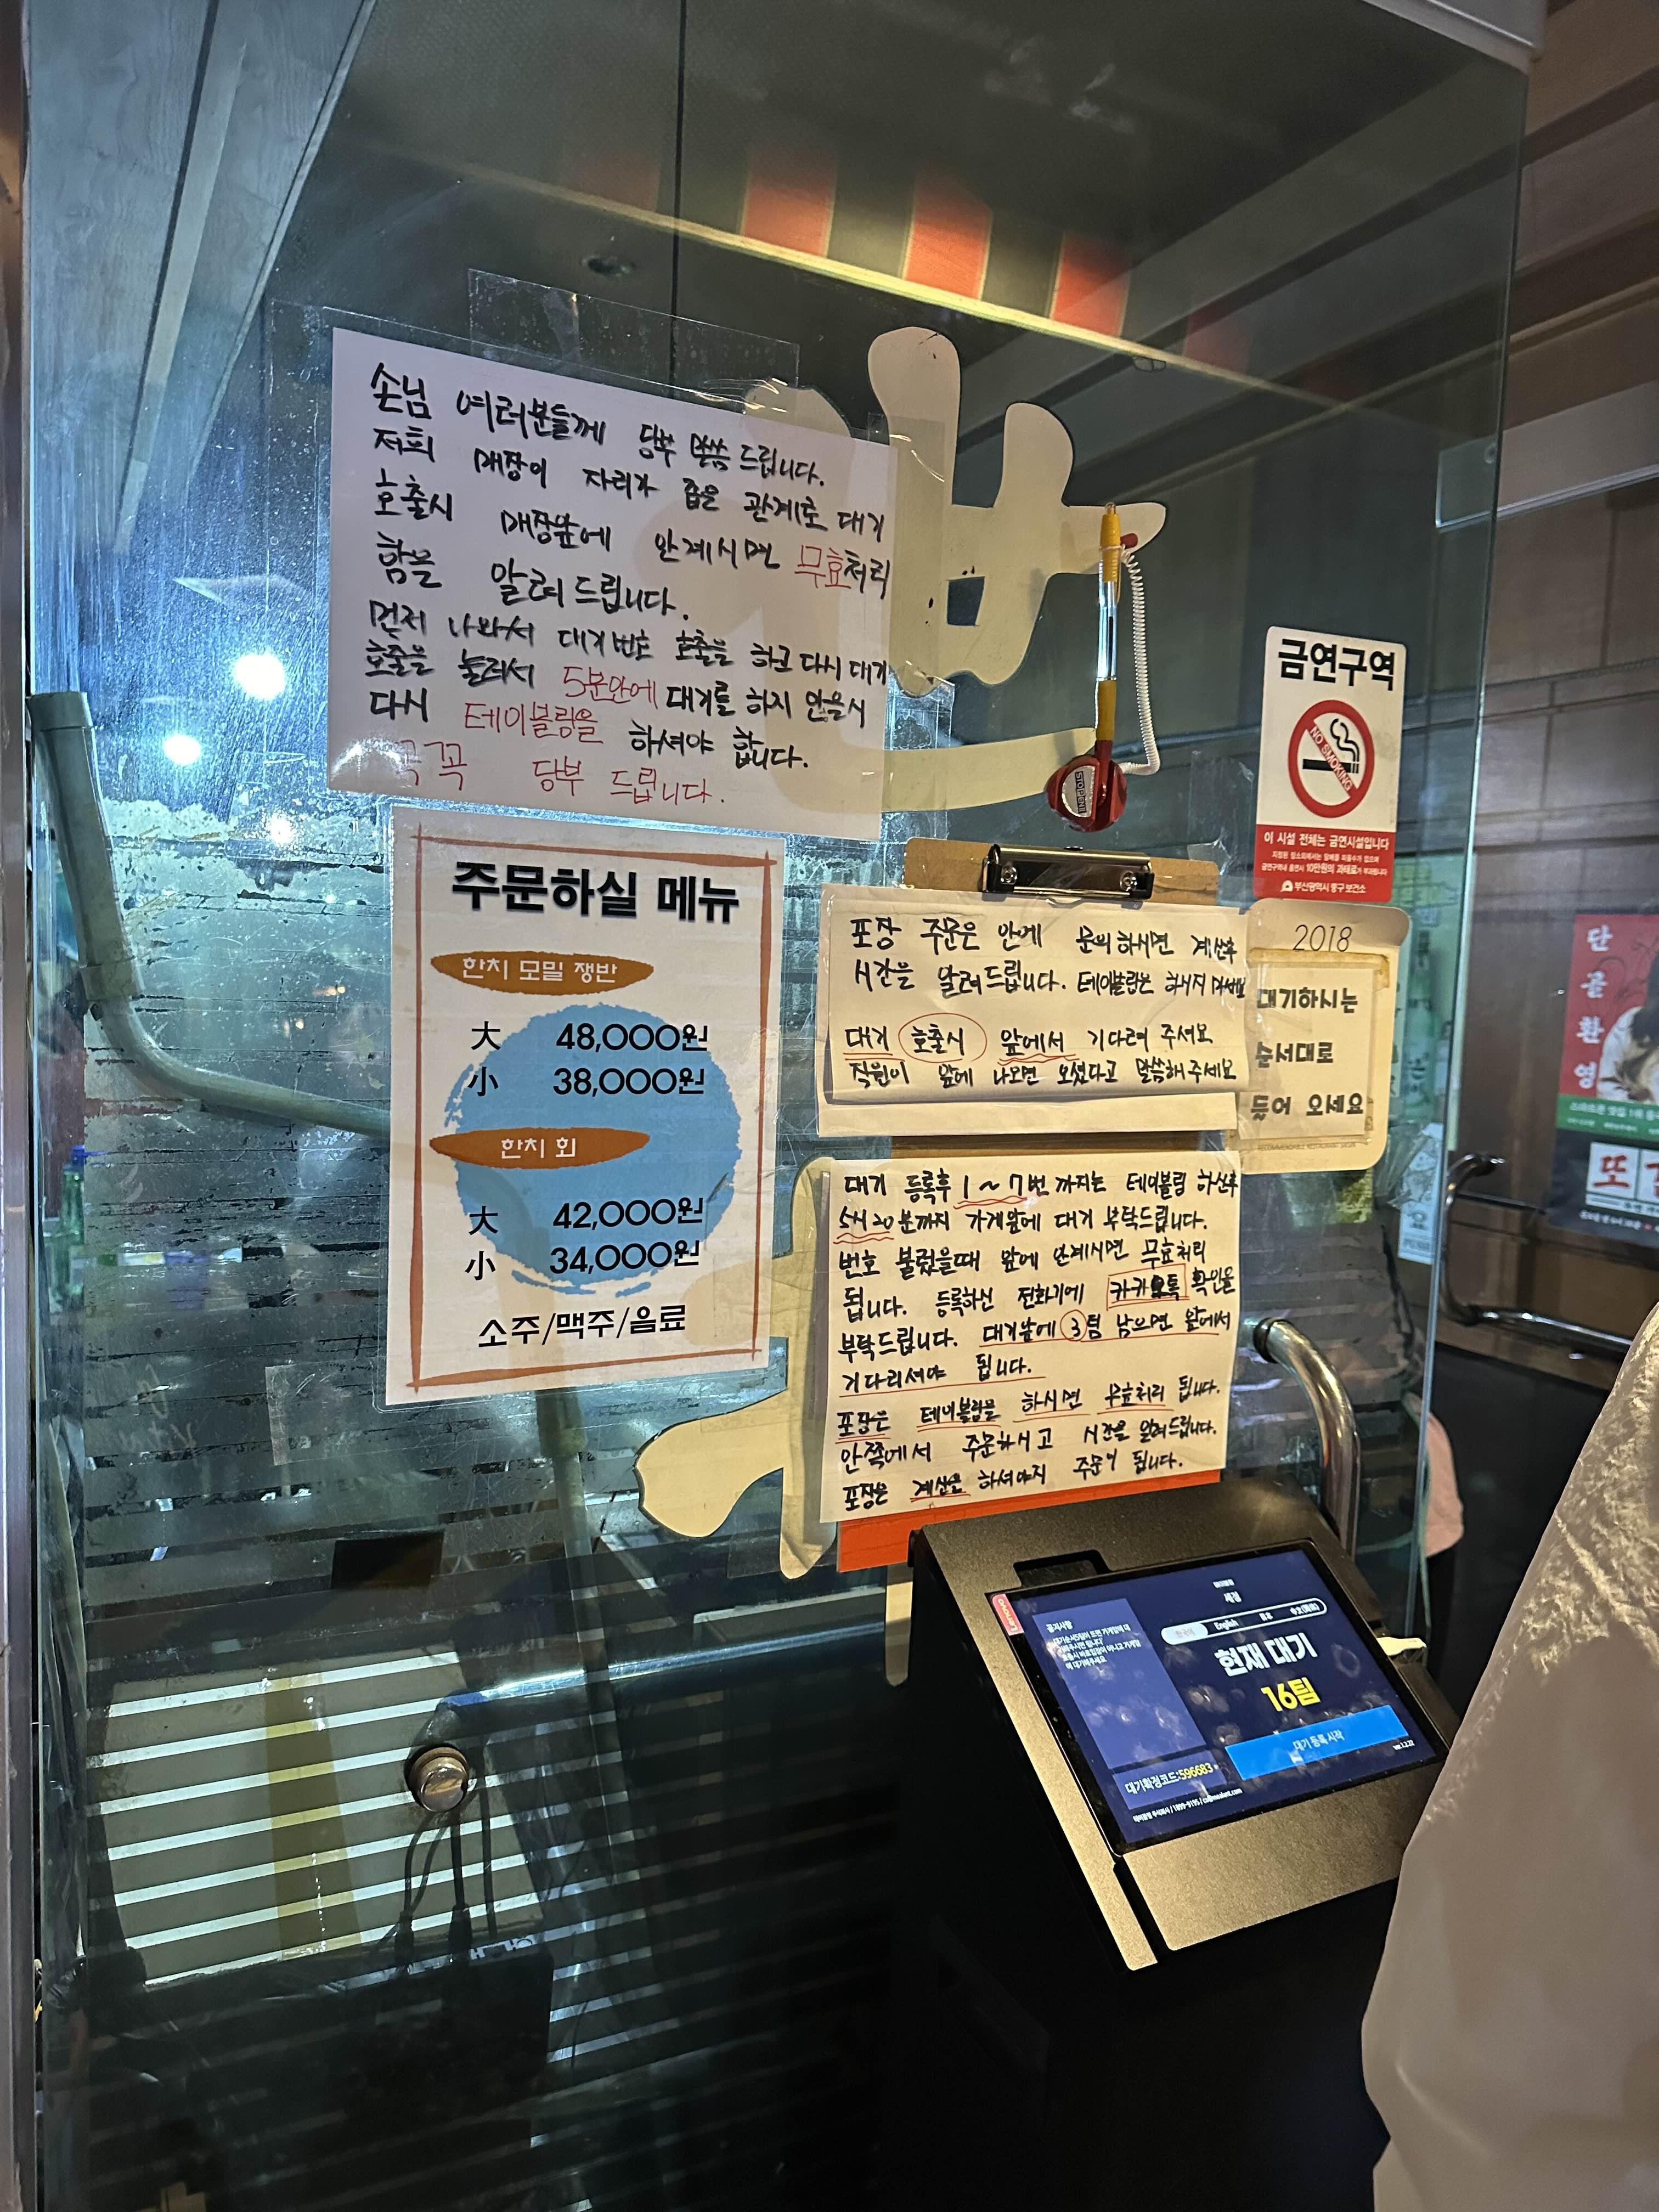 손님 여러분들께 당부 말씀 드립니다.
저희 매장이 자리가 좁은 관계로 대기
호출시 매장앞에 안계시면 무효처리
함을 알려드립니다.
먼저 나와서 대기번호 호출을 하고 다시 대기
호출을 눌러서 5분안에 대기를 하지 안을시
다시 테이블링을 하셔야 합니다.
꼭꼭 당부 드립니다.
주문하실 메뉴
한치 모밀 쟁반
大 48,000원
小 38,000원
한치 회
大 42,000원
小 34,000원
소주/맥주/음료
포장 주문은 안에 문의하시면 계산후
시간을 알려드립니다. 테이블링은 하시지 마세요
대기 호출시 앞에서 기다려 주세요
직원이 앞에 나오면 오셨다고 말씀해주세요
대기 등록후 1~7번 까지는 테이블링 하신후
5시20분까지 가게앞에 대기 부탁드립니다.
번호 불렀을때 앞에 안계시면 무효처리
됩니다. 등록하신 전화기에 카카오톡 확인을
부탁드립니다. 대기앞에 3팀 남으면 앞에서
기다리셔야 됩니다.
포장은 테이블링을 하시면 무효처리 됩니다.
안쪽에서 주문하시고 시간을 알려드립니다.
포장은 계산을 하셔야지 주문이 됩니다.
금연구역
NO SMOKING
이 시설 전체는 금연시설입니다
지정된 장소외에서는 담배를 피울수가 없으며
금연구역내 흡연시 10만원의 과태료가 부과됩니다
부산광역시 중구 보건소
2018
대기하시는
순서대로
들어 오세요
단골환영
또
Lenovo
공지사항
English
현재 대기
16팀
대기 등록 시작
대기확정코드:596683
ver.1.2.22